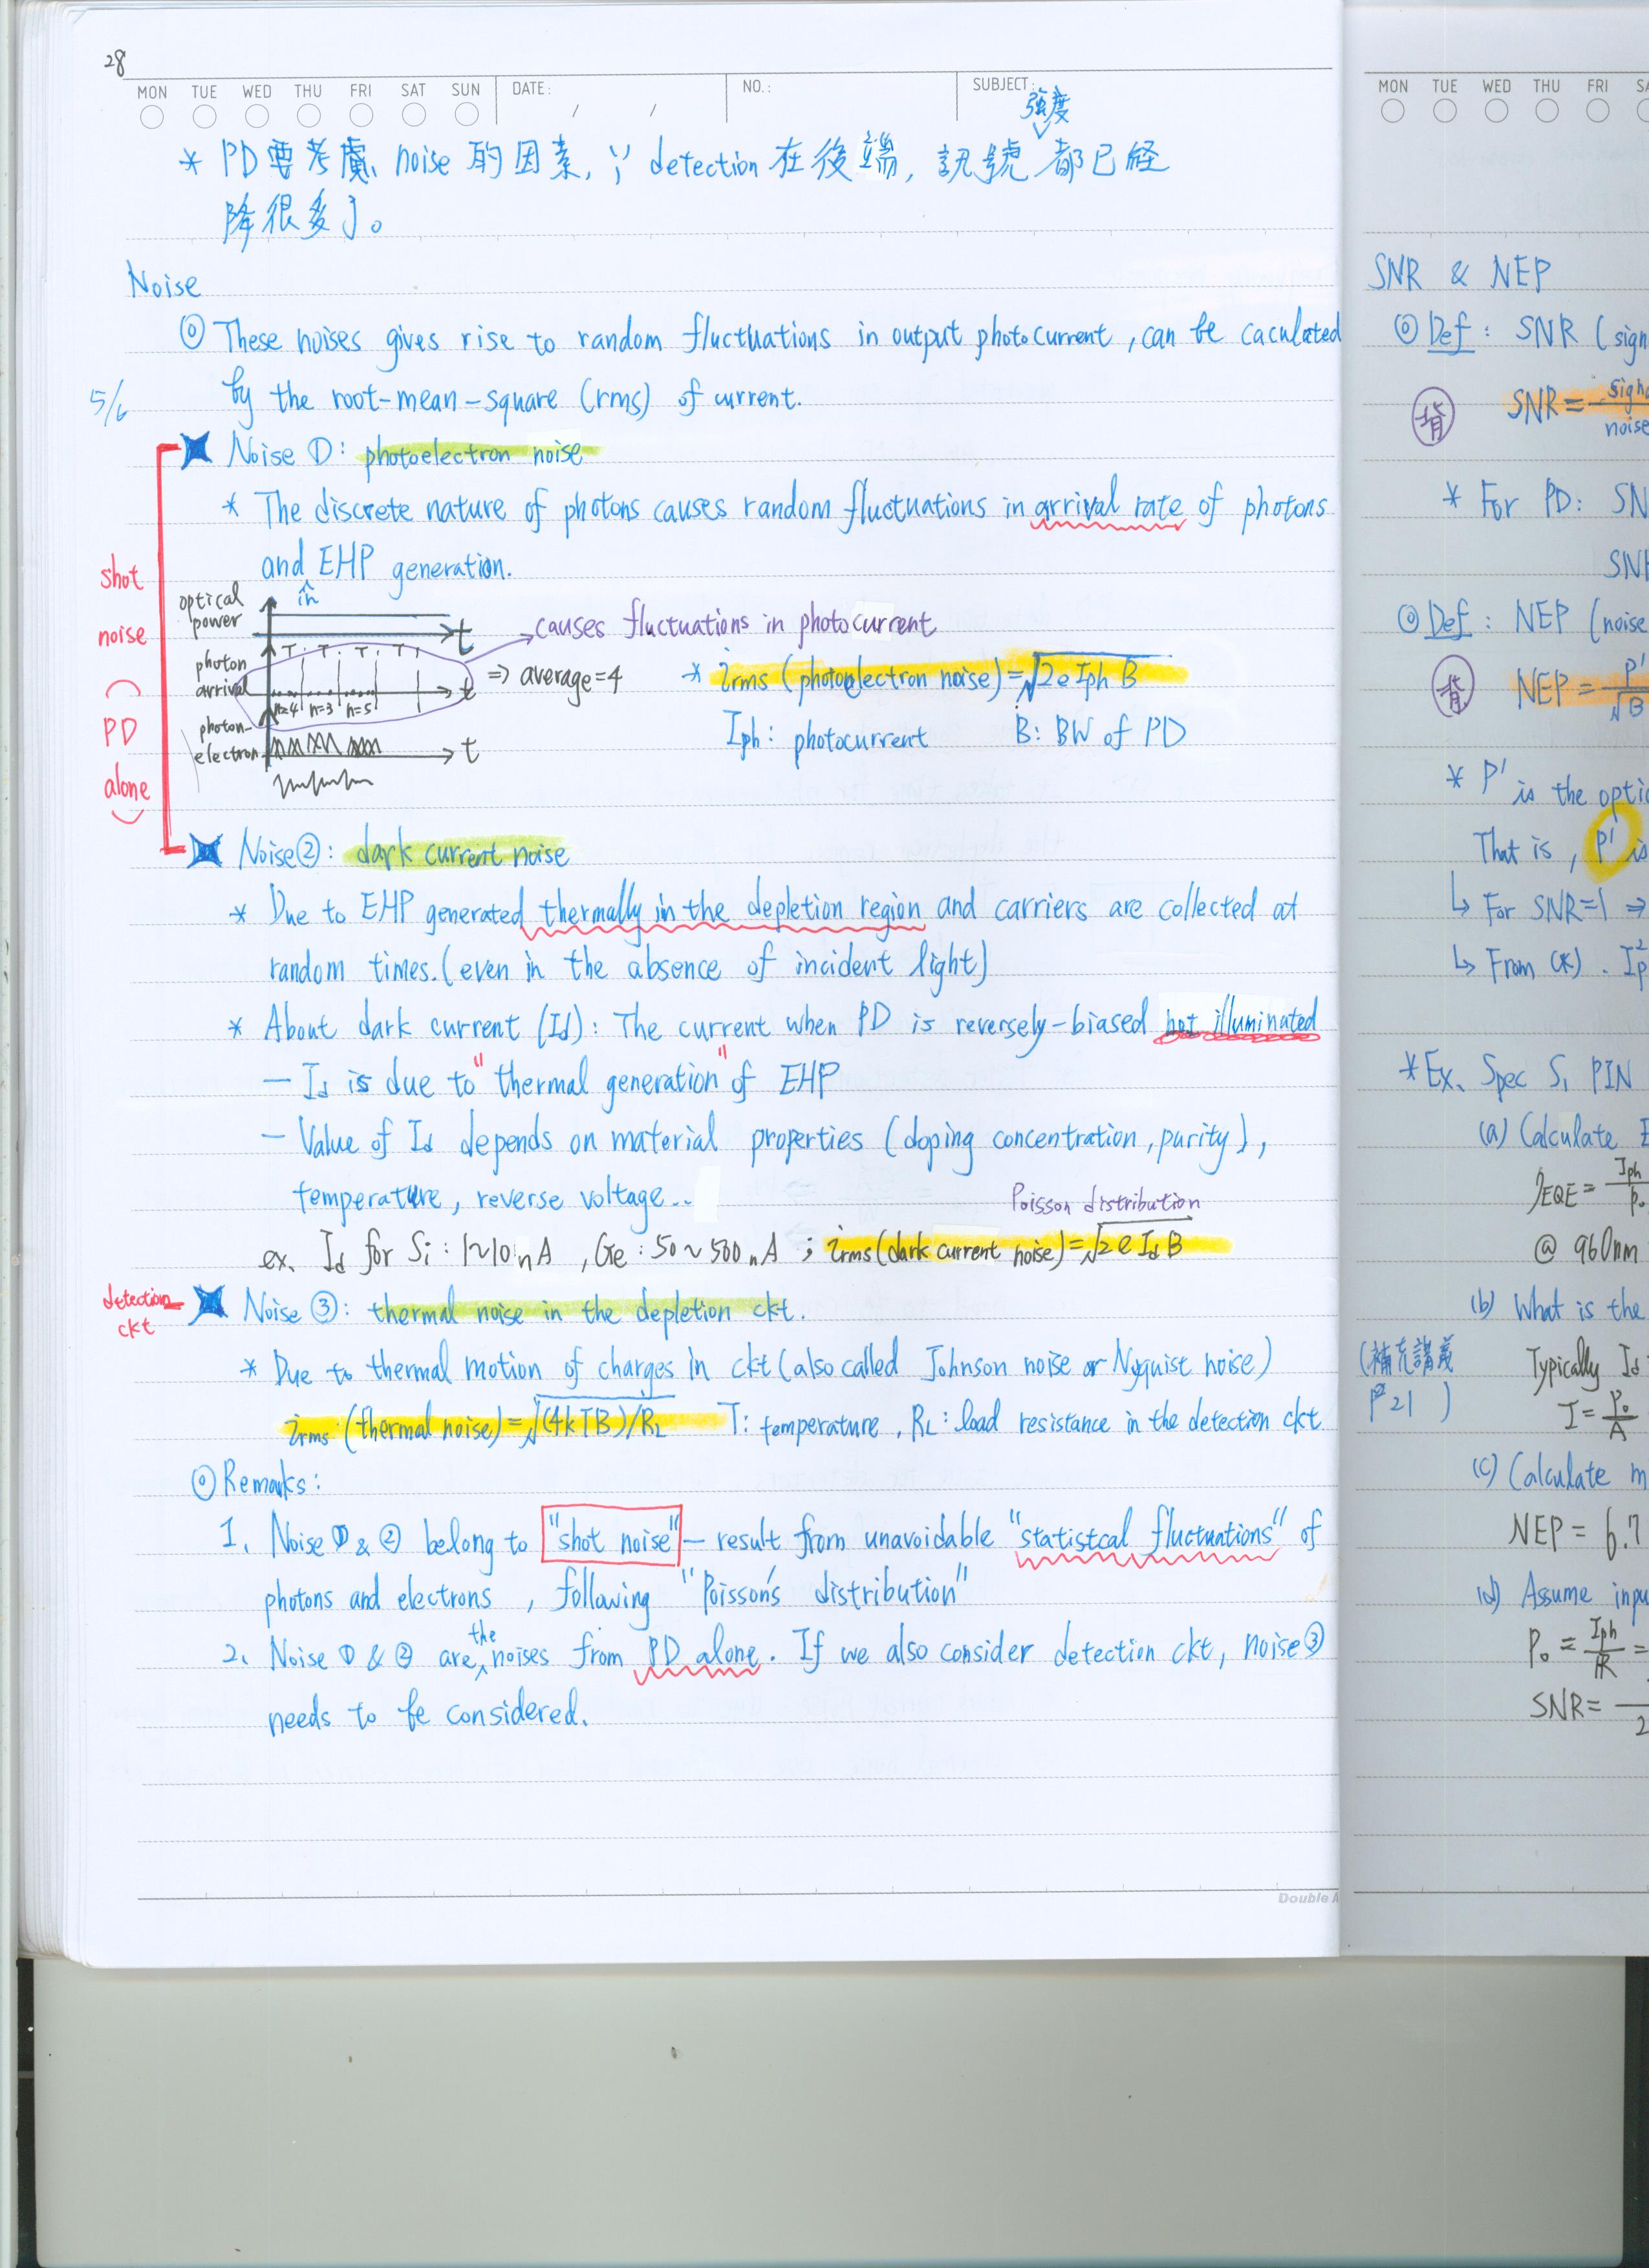 28
MON TUE WED THU FRI SAT SUN DATE: / / NO.: SUBJECT:
強度
* PD要考慮 noise 的因素, ∵ detection 在後端, 訊號 都已経
降很多了。
Noise
◎ These noises gives rise to random fluctuations in output photocurrent, can be caculated
5/6
by the root-mean-square (rms) of current.
Noise ①: photoelectron noise
* The discrete nature of photons causes random fluctuations in arrival rate of photons
and EHP generation.
shot
noise
(PD
alone)
optical
power
in
t
causes fluctuations in photocurrent
photon
arrival
T T T T
t
n=4 n=3 n=5
⇒ average=4
* irms (photoelectron noise) = √2e Iph B
Iph: photocurrent B: BW of PD
photon-
electron
t
Noise②: dark current noise
* Due to EHP generated thermally in the depletion region and carriers are collected at
random times. (even in the absence of incident light)
* About dark current (Id): The current when PD is reversely-biased not illuminated
— Id is due to "thermal generation" of EHP
— Value of Id depends on material properties (doping concentration, purity),
temperature, reverse voltage..
Poisson distribution
ex. Id for Si: 1~10 nA, Ge: 50~500 nA ; irms (dark current noise) = √2e Id B
detection
ckt
Noise ③: thermal noise in the depletion ckt.
* Due to thermal motion of charges in ckt (also called Johnson noise or Nyquist noise)
irms (thermal noise) = √(4kTB)/RL T: temperature, RL: load resistance in the detection ckt
◎ Remarks:
1. Noise ① & ② belong to "shot noise" — result from unavoidable "statistcal fluctuations" of
photons and electrons, following "Poisson's distribution"
2. Noise ① & ② are the noises from PD alone. If we also consider detection ckt, noise③
needs to be considered.
Double A
MON TUE WED THU FRI
SNR & NEP
◎ Def: SNR (sign
背 SNR = signa
noise
* For PD: SN
SNR
◎ Def: NEP (noise
背 NEP = P'/√B
* P' is the optic
That is, P' is
↳ For SNR=1 ⇒
↳ From (*). Ip²
*Ex. Spec Si PIN
(a) Calculate
ηEQE = Iph/Po
@ 960nm
(b) What is the
(補充講義
P21)
Typically Id
I = Po/A
(c) Calculate m
NEP = 6.7
(d) Assume inpu
Po = Iph/R =
SNR =
2